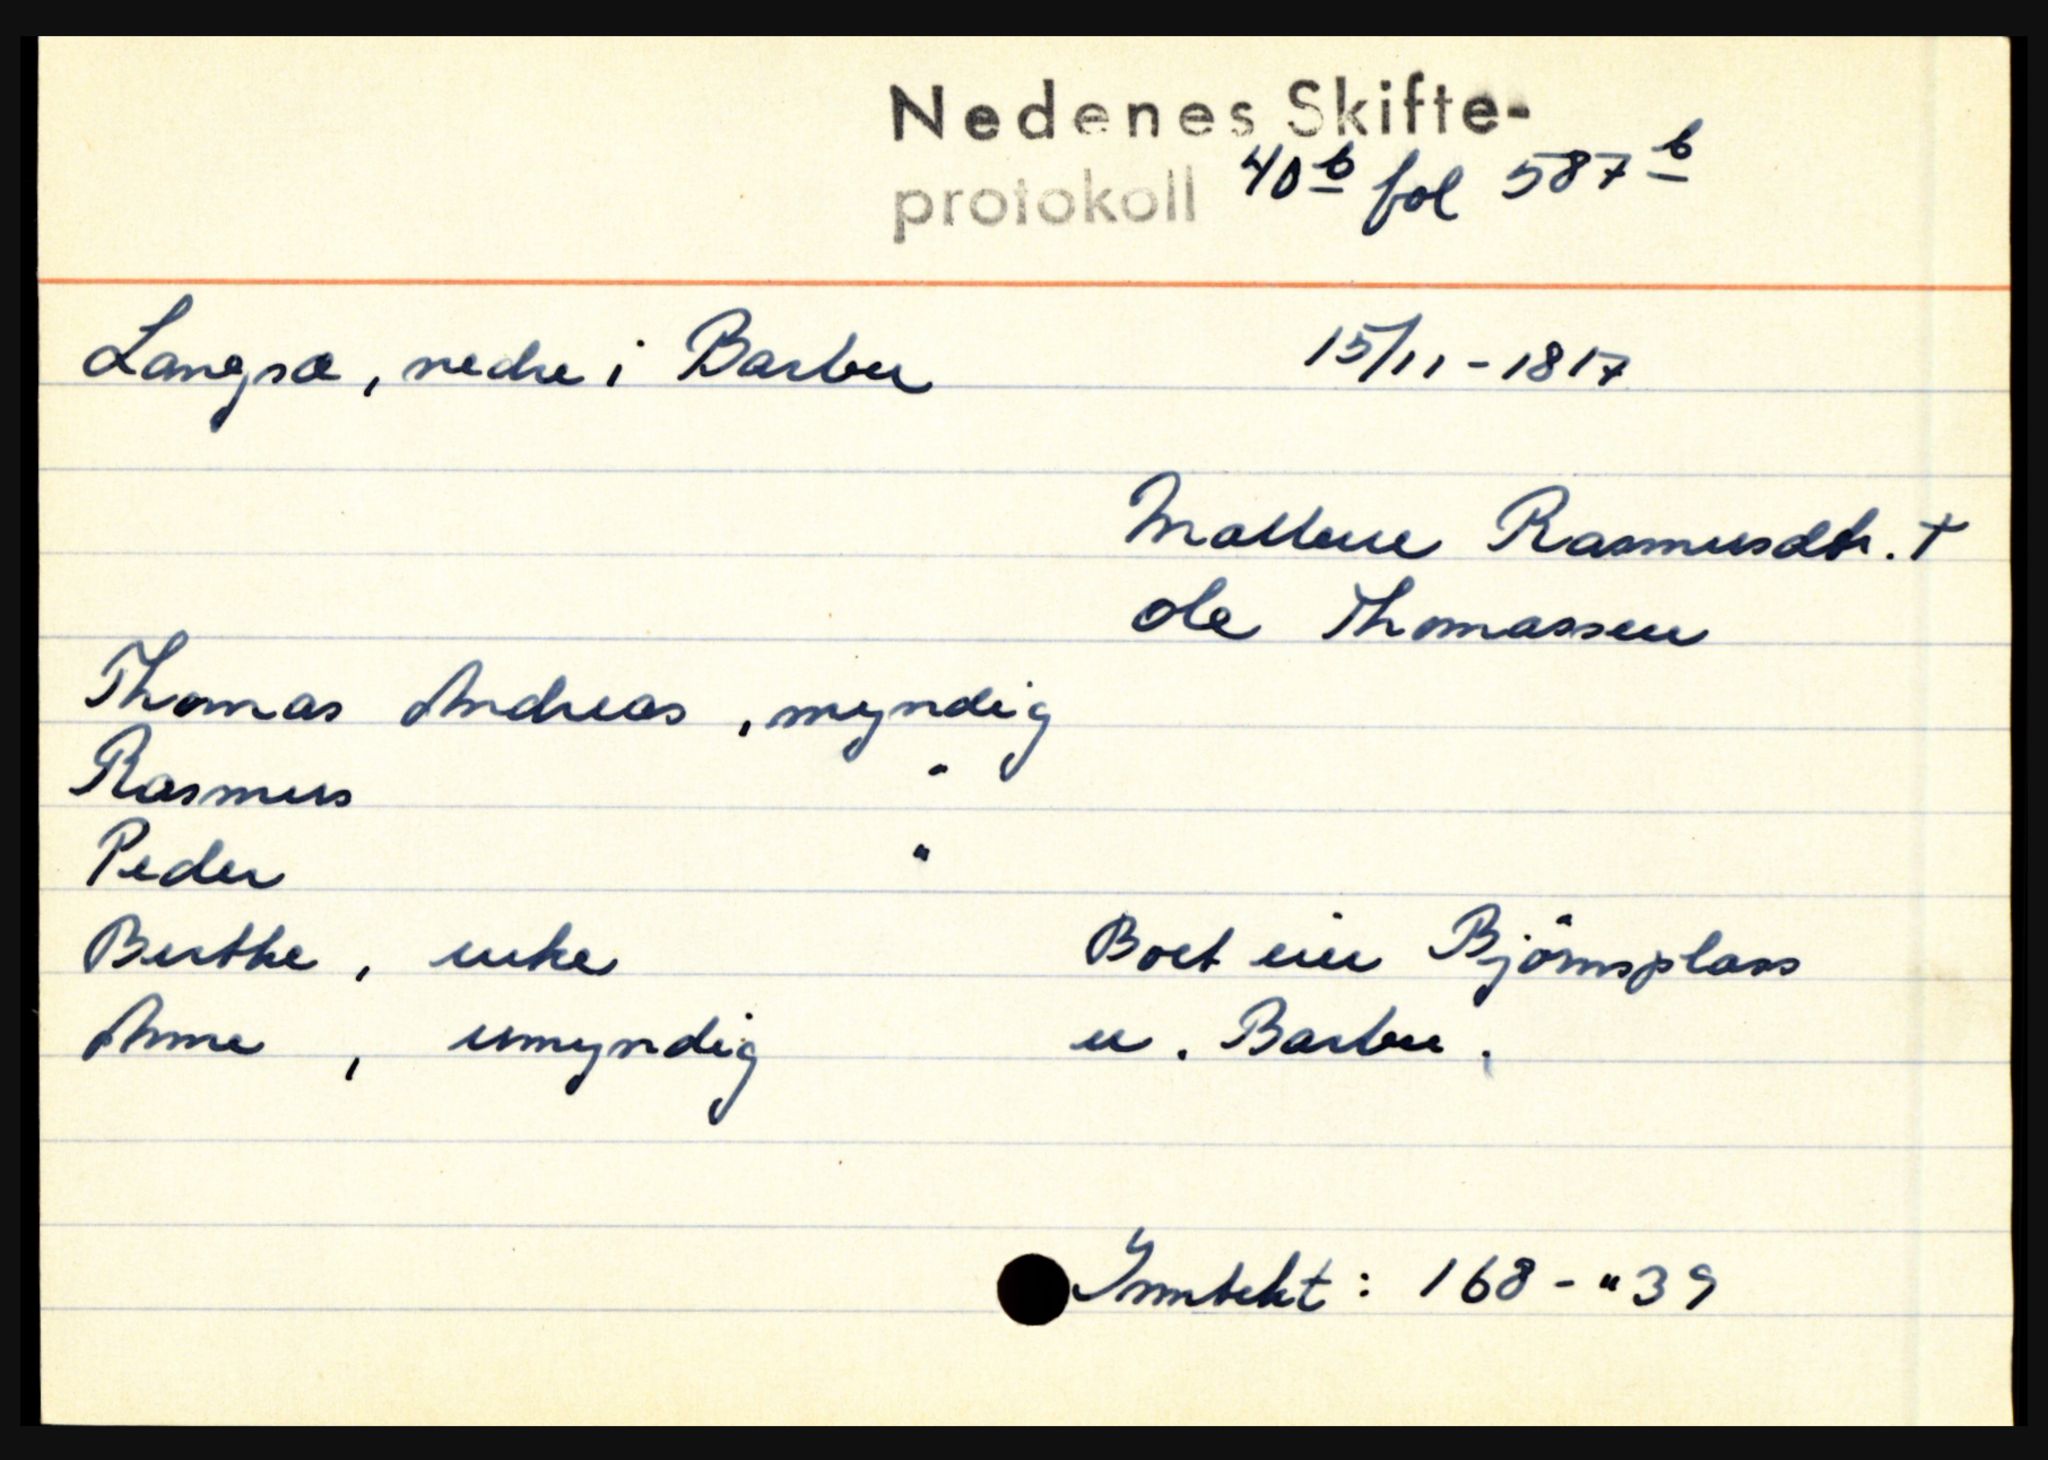 Nedenes Skifte-
protokoll 40b fol 587b
Langsæ, nedre i Barbu 15/11-1817
Mallene Rasmusdtr. †
Ole Thomassen
Thomas Andreas, myndig
Rasmus "
Peder "
Berthe, enke Boet eier Björnsplass
Anne, umyndig u. Barbu.
Inntekt: 168-"39